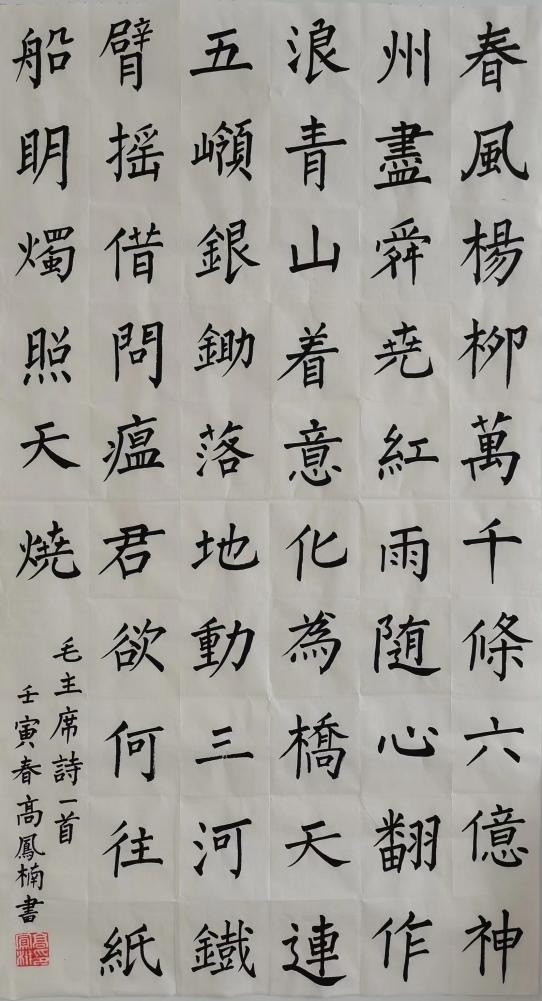 春風楊柳萬千條六億神
州盡舜尧紅雨随心翻作
浪青山着意化為橋天連
五嶺銀鋤落地動三河鐵
臂摇借問瘟君欲何往紙
船明燭照天燒
毛主席詩一首
壬寅春高鳳楠書